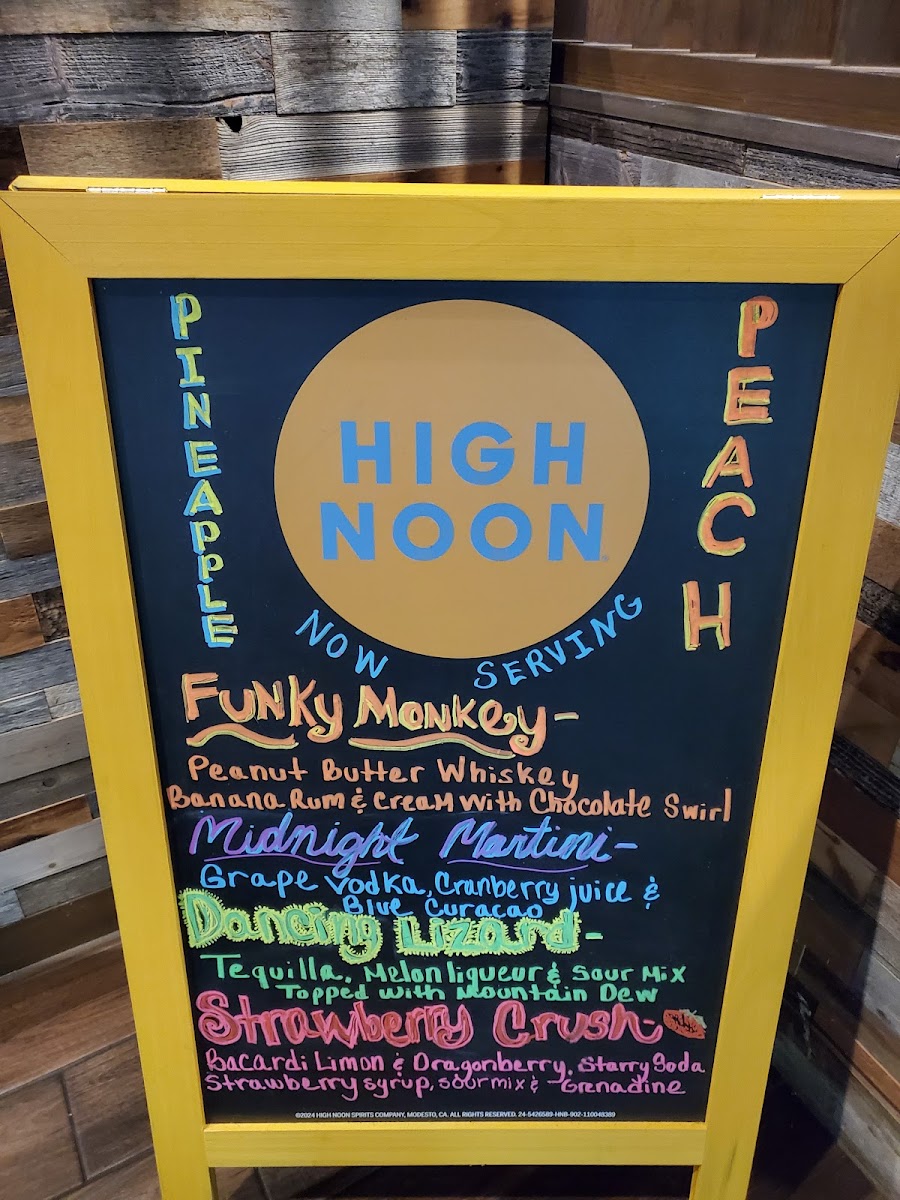 PINEAPPLE
HIGH
NOON
PEACH
NOW SERVING
FUNKy MONKey-
Peanut Butter Whiskey
Banana Rum & Cream With Chocolate Swirl
Midnight Martini-
Grape Vodka, Cranberry juice &
Blue Curacao
Dancing Lizard-
Tequilla, Melon liqueur & Sour Mix
Topped with Mountain Dew
Strawberry Crush-
Bacardi Limon & Dragonberry, Starry Soda
Strawberry syrup, sour mix & Grenadine
©2024 HIGH NOON SPIRITS COMPANY, MODESTO, CA. ALL RIGHTS RESERVED. 24-5426589-HNB-902-116048389